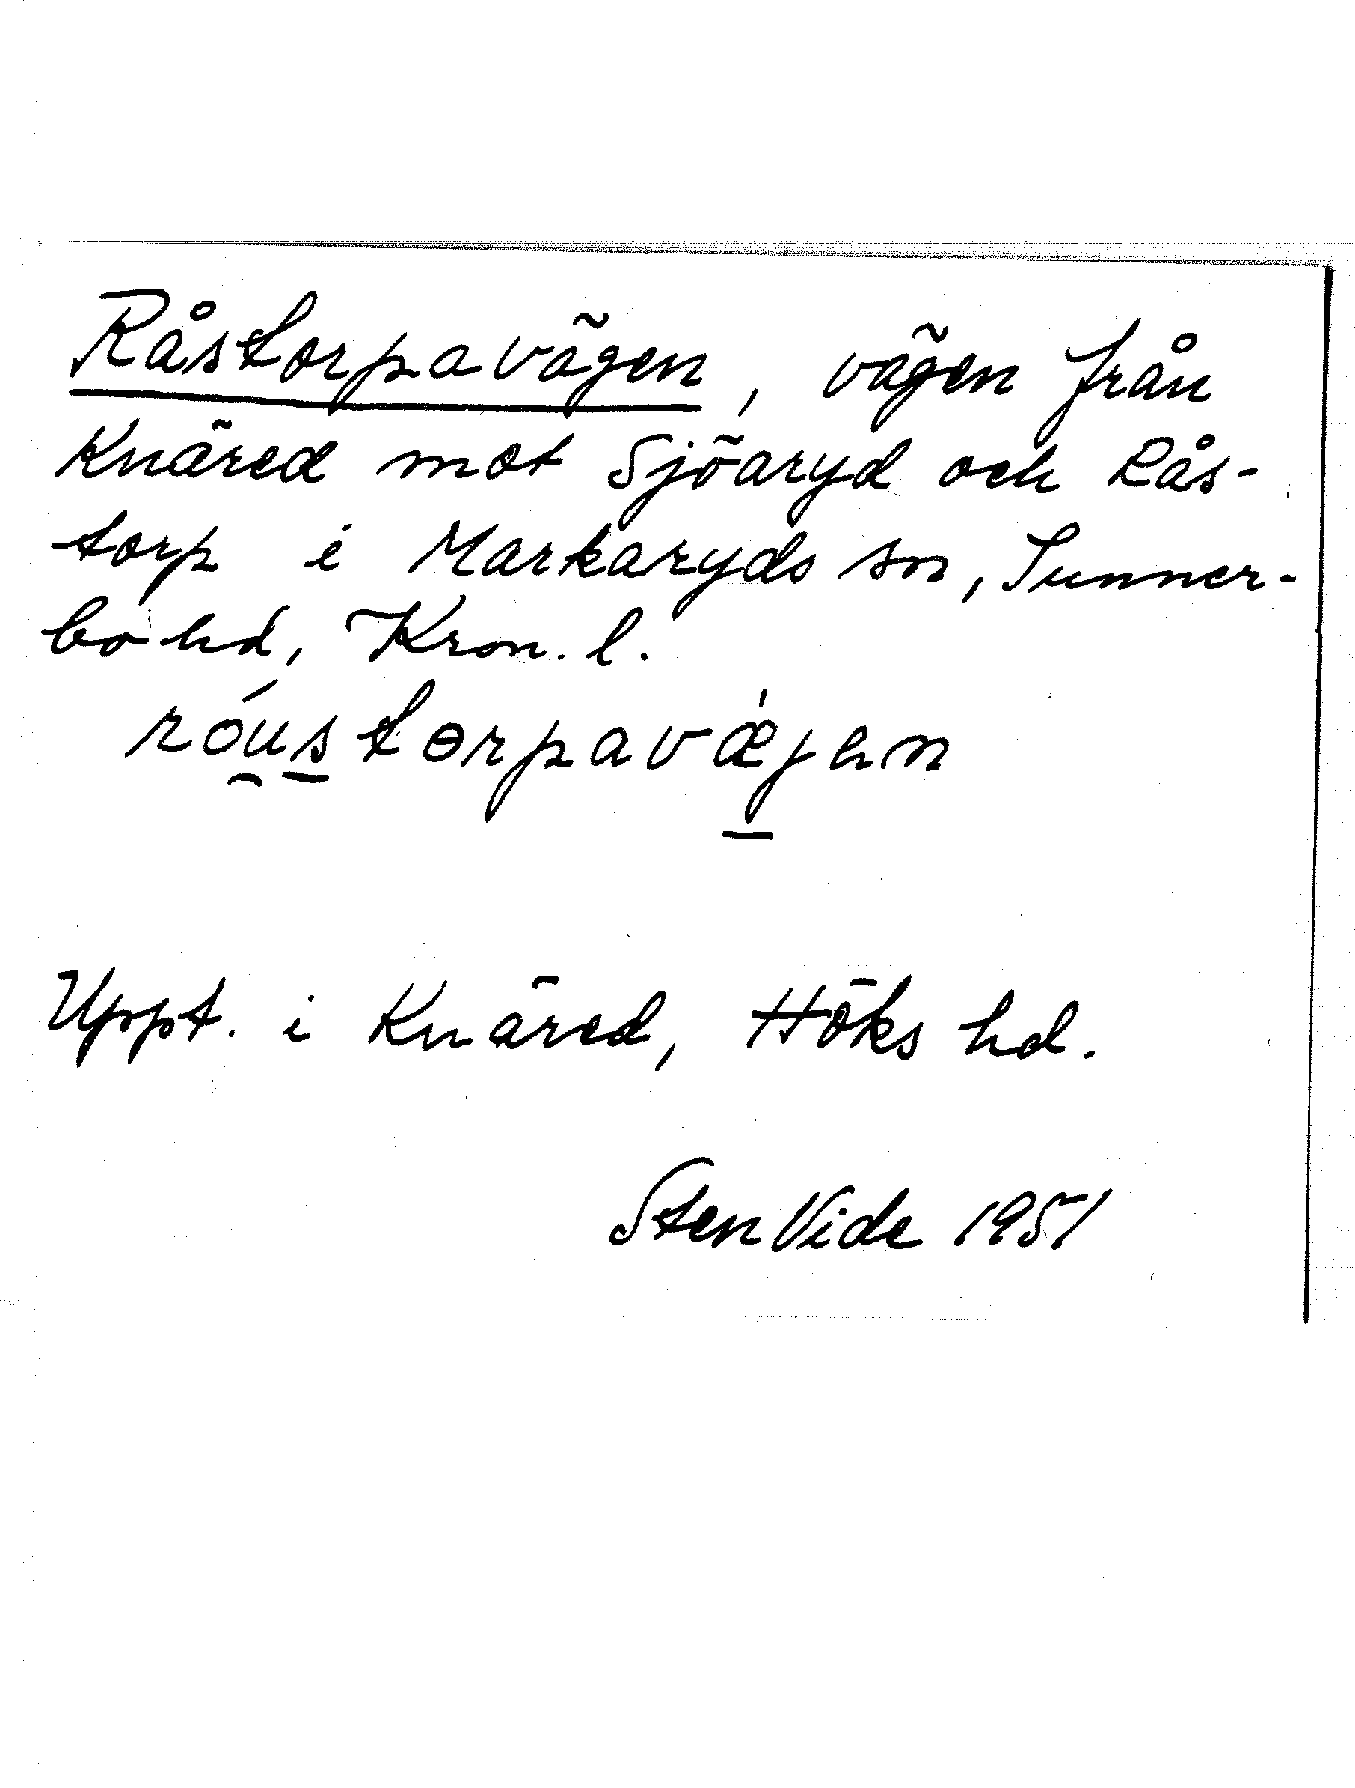 Råstorpavägen, vägen från
Knäred mot Sjöaryd och Rås-
torp i Markaryds sn, Sunner-
bo hd, Kron. l.
róu̯s̲torpavǽj̲ən
Uppt. i Knäred, Höks hd.
Sten Vide 1951